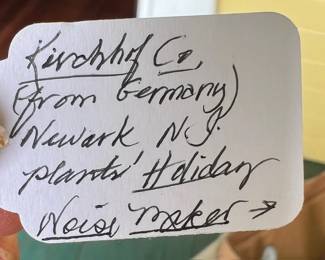 Kirchhof Co,
(from Germany)
Newark N.J.
plants' Holiday
Noise Maker →